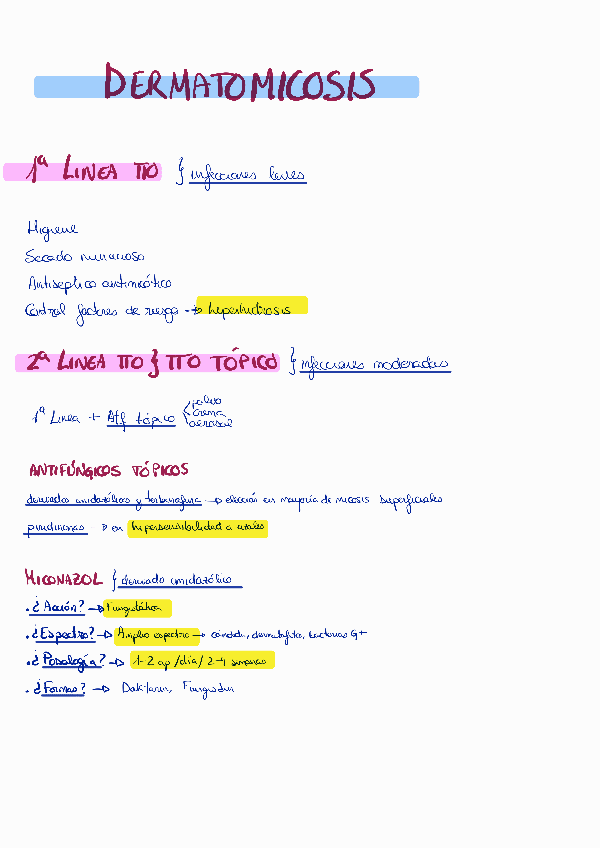 DERMATOMICOSIS
1ª LINEA TTO { infecciones leves
Higiene
Secado minucioso
Antiséptico antimicótico
Control factores de riesgo → hiperhidrosis
2ª LINEA TTO } TTO TÓPICO { infecciones moderadas
1ª Linea + Atf tópico < polvo
crema
aerosol
ANTIFÚNGICOS TÓPICOS
derivados imidazólicos y terbinafina → elección en mayoría de micosis superficiales
piridinonas → en hipersensibilidad a azoles
MICONAZOL { derivado imidazólico
• ¿Acción? → Fungistático
• ¿Espectro? → Amplio espectro → cándida, dermatofitos, bacterias G+
• ¿Posología? → 1-2 ap/día/2-4 semanas
• ¿Formas? → Daktarin, Fungisdin